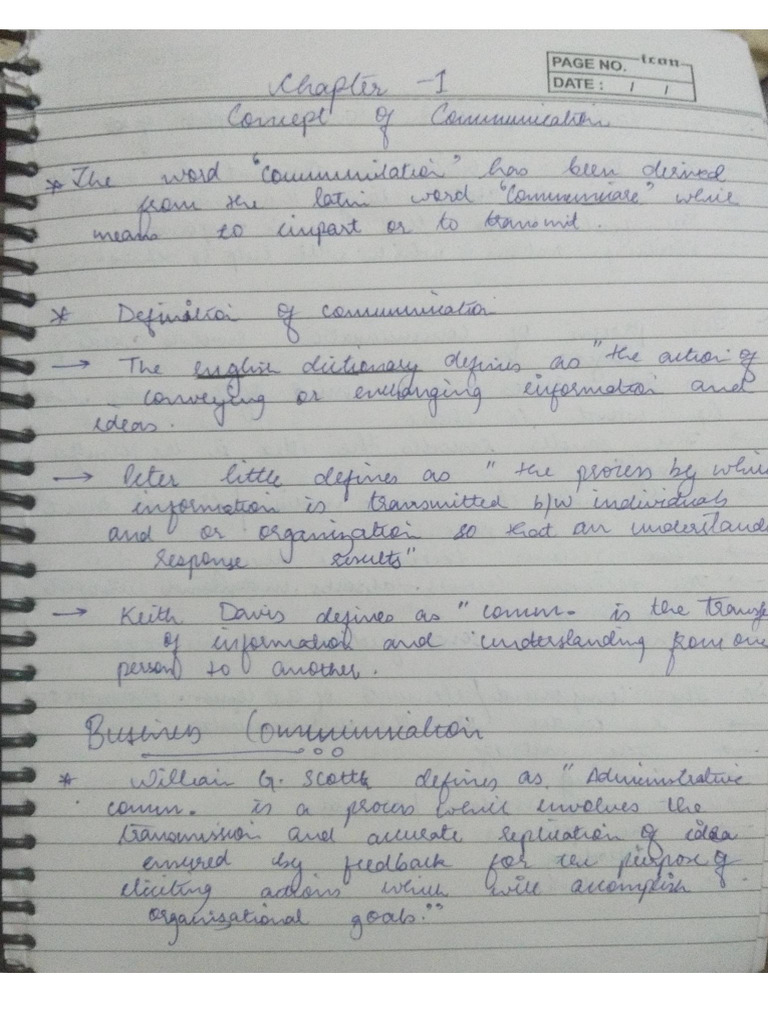 PAGE NO. icon
DATE: / /
Chapter -1
Concept of Communication
* The word "Communication" has been derived
from the latin word "Communicare" which
means to impart or to transmit.
* Definition of communication
→ The english dictionary defines as "the action of
conveying or exchanging information and
ideas.
→ Peter little defines as "the process by whi
information is transmitted b/w individuals
and or organization so that an understand
response results"
→ Keith Davis defines as "comm. is the transfe
of information and understanding from one
person to another.
Business Communication
* William G. Scott defines as "Administrative
comm. is a process which involves the
transmission and accurate replication of idea
ensured by feedback for the purpose of
eliciting actions which will accomplish
organisational goals."